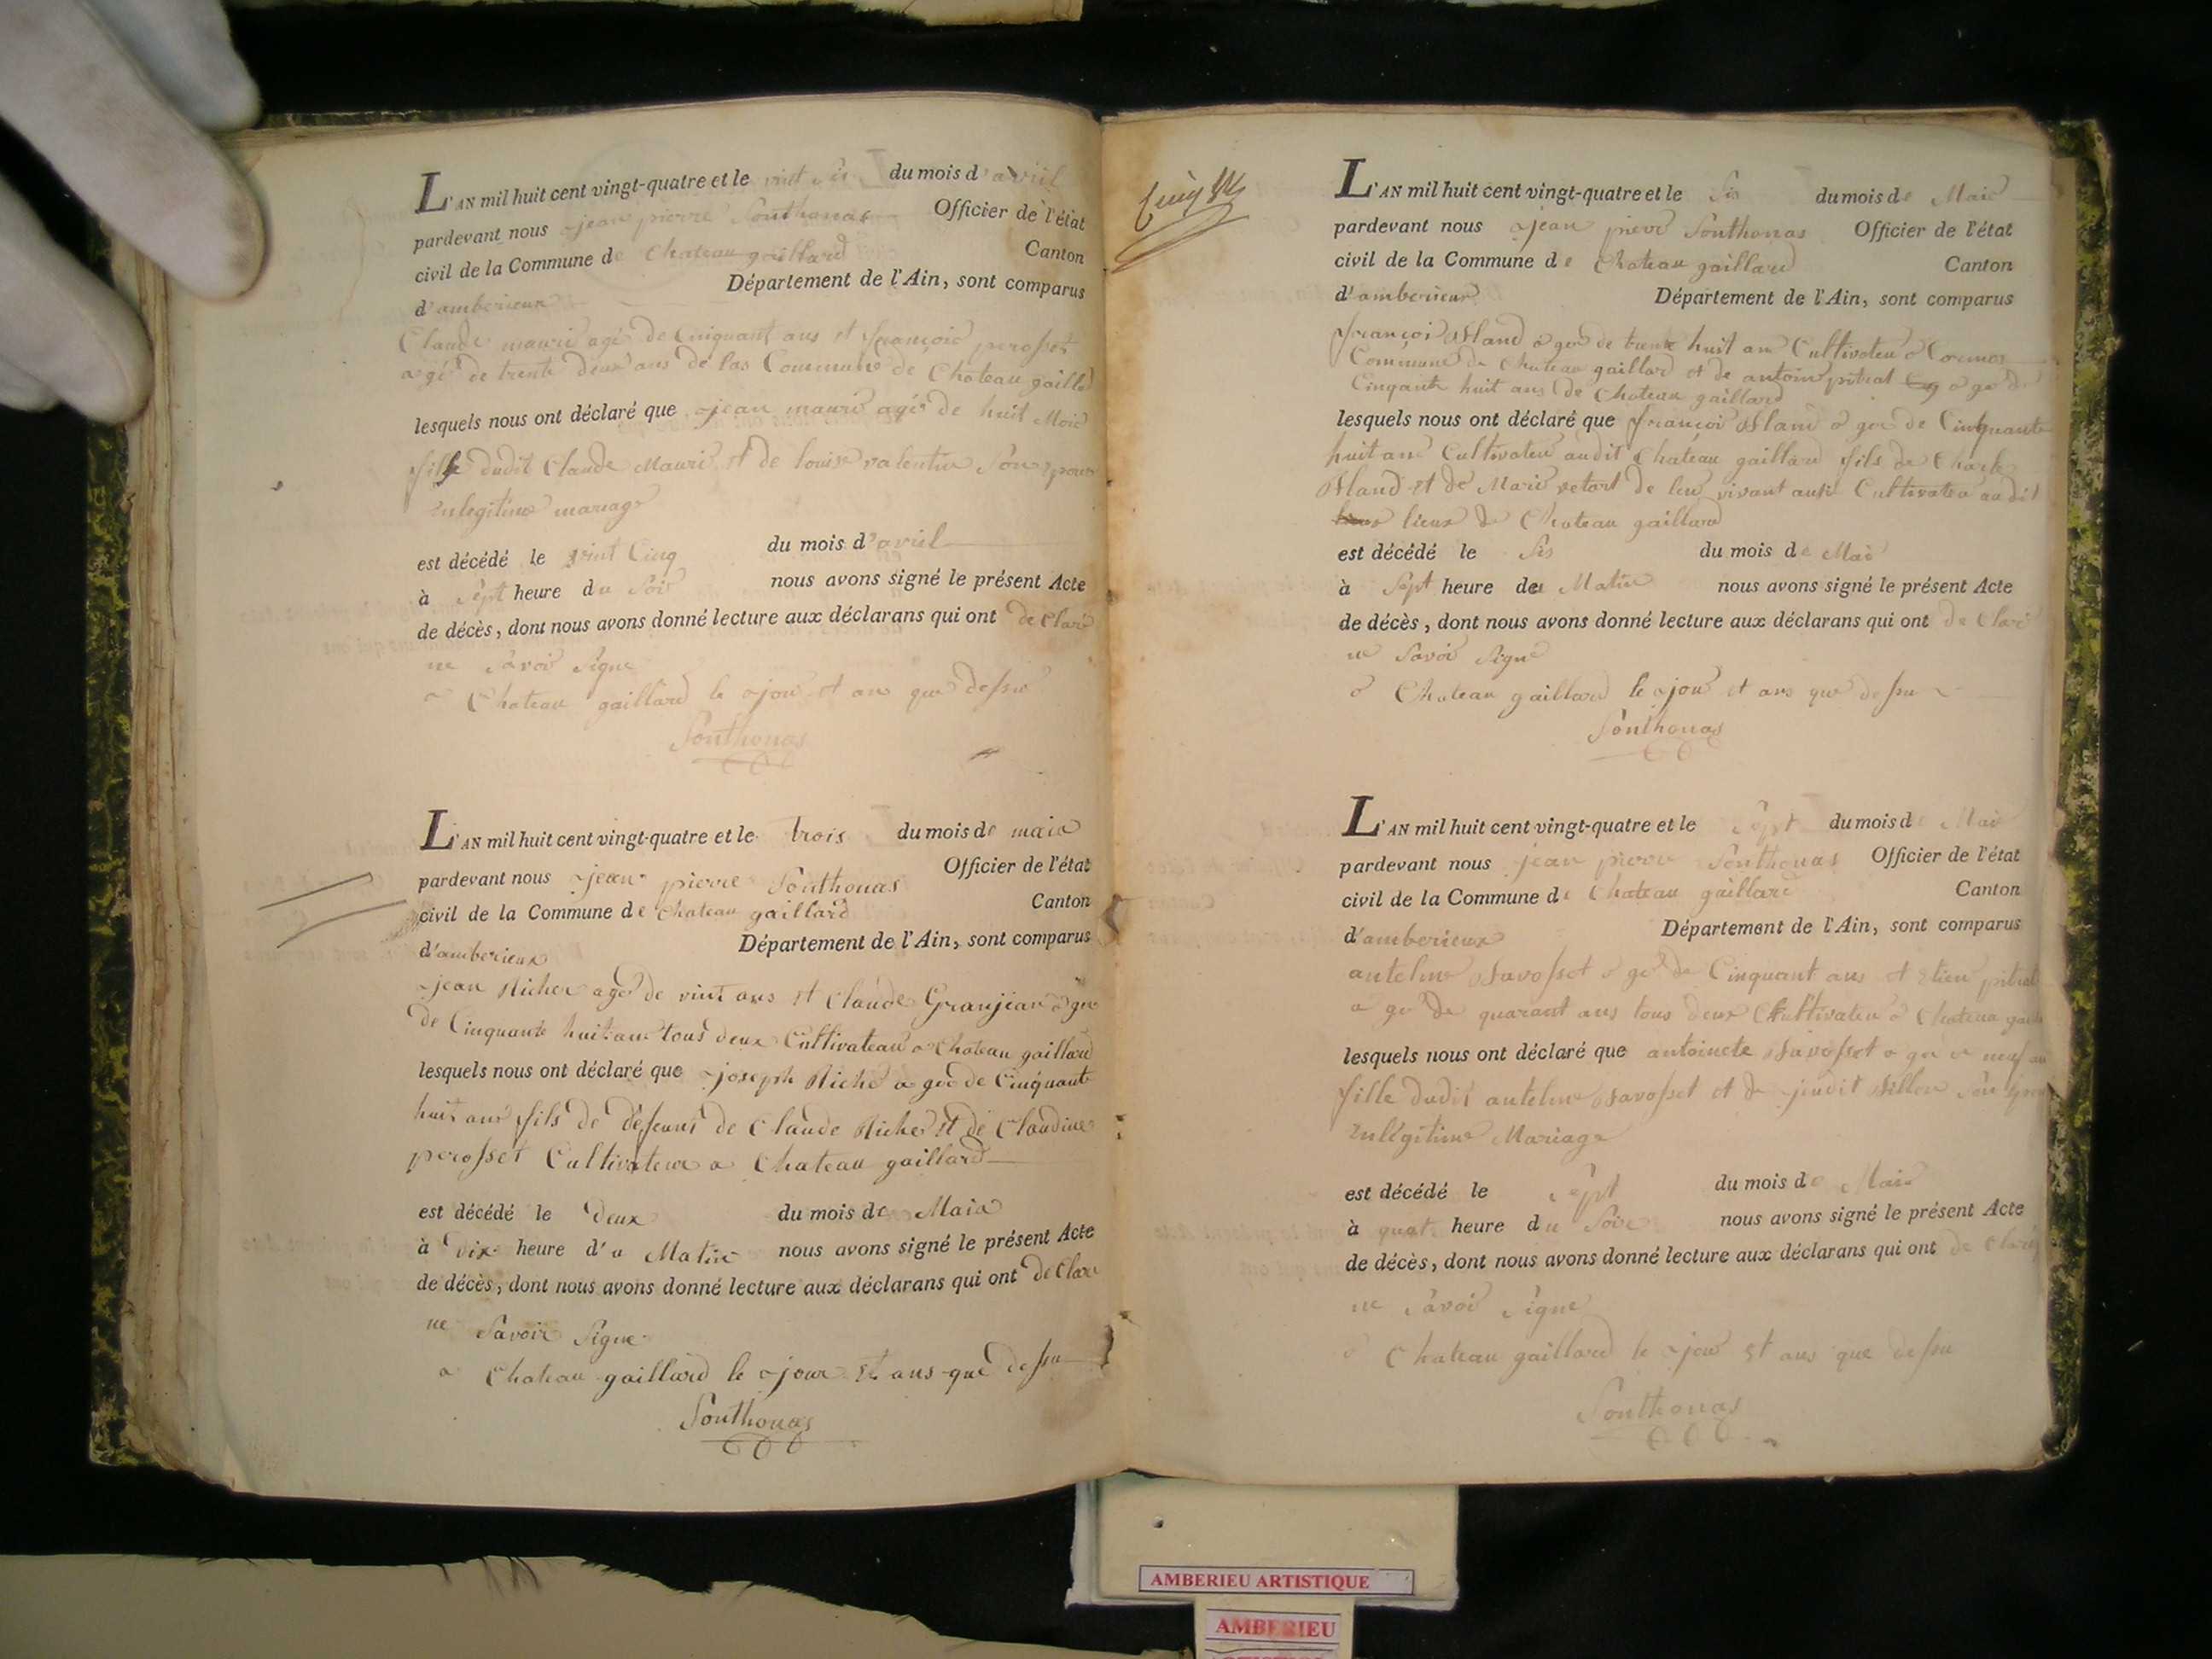 L'AN mil huit cent vingt-quatre et le vint sis du mois d'avril
pardevant nous jean pierre Ponthonas Officier de l'état
civil de la Commune de Chateau gaillard Canton
d'amberieux Département de l'Ain, sont comparus
Claude mauri agé de Cinquant ans et françois perosset
agé de trente deux ans de las Commune de Chateau gaillard
lesquels nous ont déclaré que jean mauri agé de huit Mois
fils dudit Claude Mauri et de louise valentin Son epous
enlegitime mariage
est décédé le vint Cinq du mois d'avril
à Sept heure du Soir nous avons signé le présent Acte
de décès, dont nous avons donné lecture aux déclarans qui ont de Claré
ne Savoir Signe
a Chateau gaillard le jour et ans que dessus
Ponthonas
L'AN mil huit cent vingt-quatre et le trois du mois de maia
pardevant nous jean pierre Ponthonas Officier de l'état
civil de la Commune de Chateau gaillard Canton
d'amberieux Département de l'Ain, sont comparus
jean Richer agé de vint ans et Claude Granjean agé
de Cinquante huit ans tous deux Cultivateur a Chateau gaillard
lesquels nous ont déclaré que joseph Riché a gé de Cinquante
huit ans fils de defeunt de Claude Riche et de Claudine
perosset Cultivateur a Chateau gaillard
est décédé le deux du mois de Maia
à dix heure d'u Matin nous avons signé le présent Acte
de décès, dont nous avons donné lecture aux déclarans qui ont de Clare
ne Savoir Signe
a Chateau gaillard le jour et ans que dessu
Ponthonas
L'AN mil huit cent vingt-quatre et le Sis du mois de Mai
pardevant nous jean pierre Ponthonas Officier de l'état
civil de la Commune de Chateau gaillard Canton
d'amberieux Département de l'Ain, sont comparus
françois a gé de trente huit ans Cultivateur a Cormoz
Commune de Chateau gaillard et de antoine pitiat a gé de
Cinquante huit ans de Chateau gaillard
lesquels nous ont déclaré que françois a gé de Cinquante
huit ans Cultivateur audit Chateau gaillard fils de Charle
et de Marie retort de leur vivant ausi Cultivateur audit
lieux de Chateau gaillard
est décédé le Sis du mois de Mai
à Sept heure de Matin nous avons signé le présent Acte
de décès, dont nous avons donné lecture aux déclarans qui ont de Claré
ne Savoir Signé
a Chateau gaillard le jour et ans que dessu
Ponthonas
L'AN mil huit cent vingt-quatre et le Sept du mois de Mai
pardevant nous jean pierre Ponthonas Officier de l'état
civil de la Commune de Chateau gaillard Canton
d'amberieux Département de l'Ain, sont comparus
antelme Savosset a gé de Cinquant ans et etien pitiat
a gé de quarant ans tous deux Cultivateur a Chateau gaill
lesquels nous ont déclaré que antoinete Savosset a gé de neuf an
fille dudit antelme Savosset et de judit Son epous
enlegitime Mariage
est décédé le Sept du mois de Mai
à quatr heure du Soir nous avons signé le présent Acte
de décès, dont nous avons donné lecture aux déclarans qui ont de Claré
ne Savoir Signe
a Chateau gaillard le jour et ans que dessu
Ponthonas
AMBERIEU ARTISTIQUE
AMBERIEU